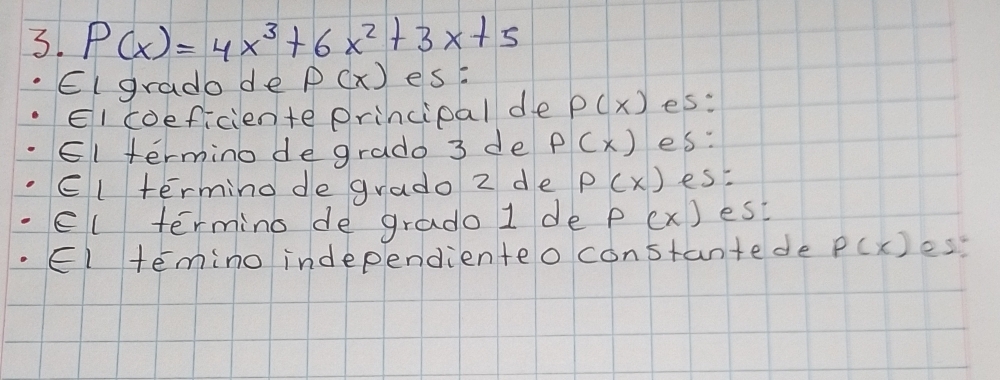 3. P(x) = 4x³ + 6x² + 3x + 5
• El grado de P(x) es:
• El coeficiente principal de p(x) es:
• El término de grado 3 de P(x) es:
• El término de grado 2 de P(x) es:
• El término de grado 1 de P(x) es:
• El témino independiente o constante de P(x) es: